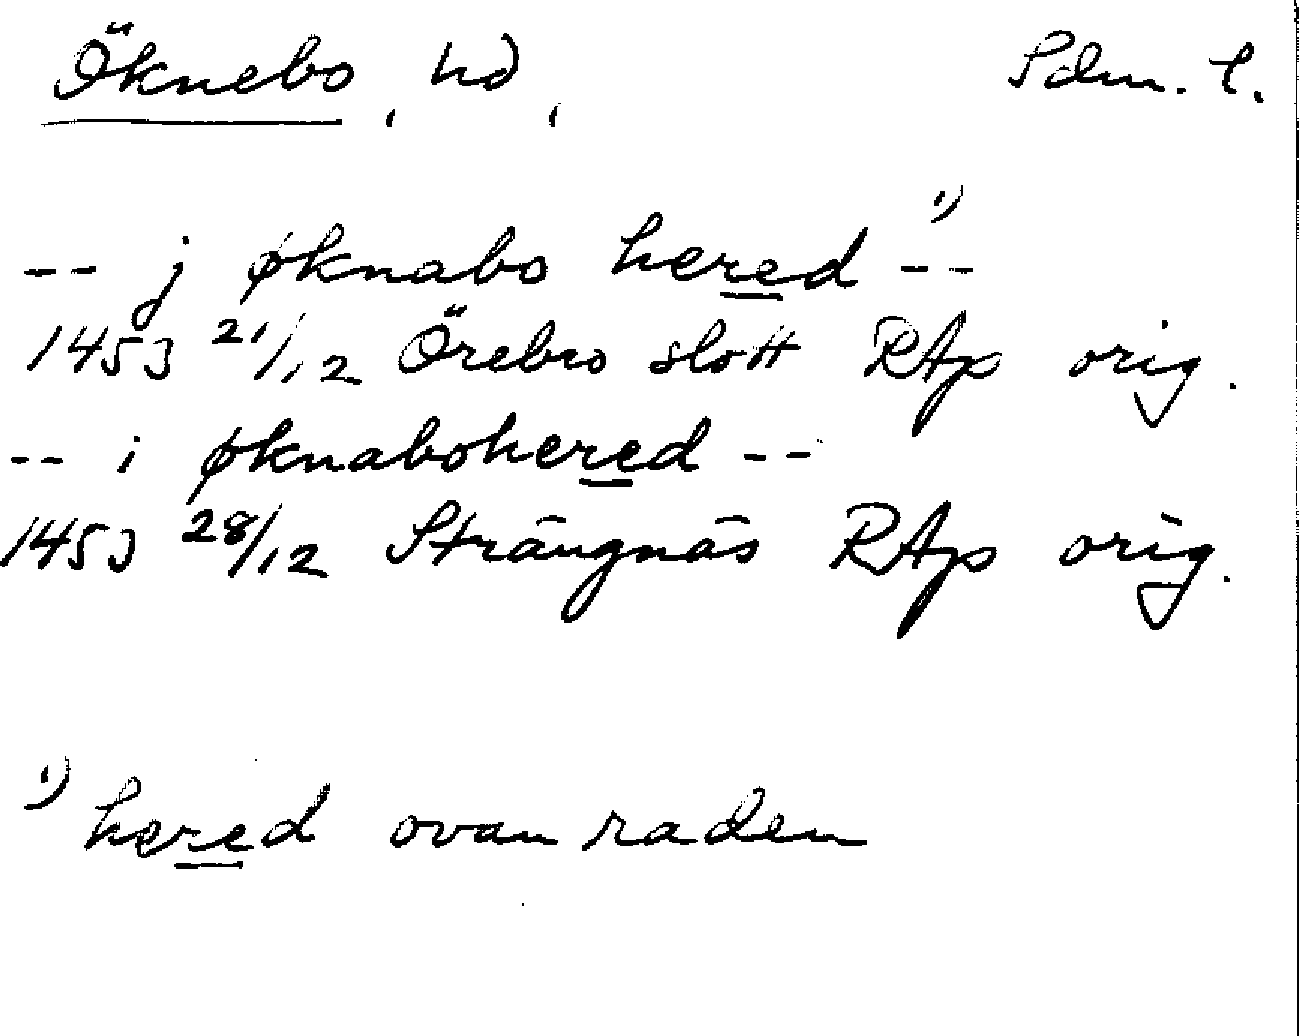 Öknebo, hd, Sdm. l.
-- j øknabo hered ¹) --
1453 21/12 Örebro slott RAp orig.
-- i øknabohered --
1453 28/12 Strängnäs RAp orig.
¹) hered ovan raden